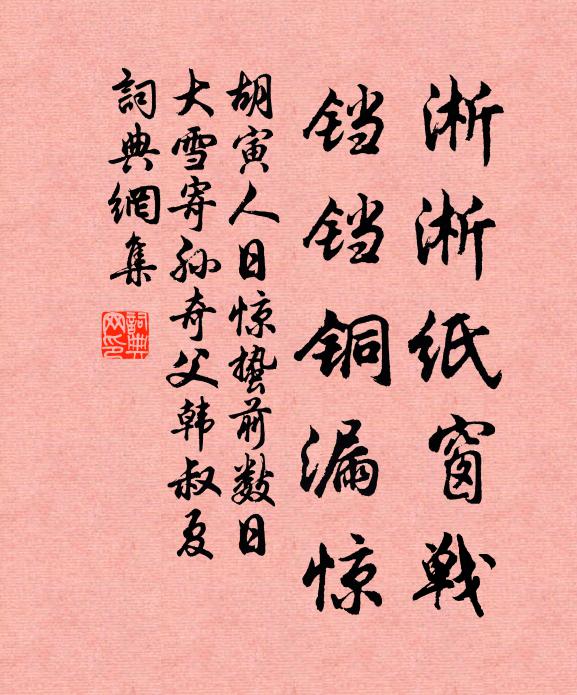 淅淅紙窗戰
铛铛铜漏惊
胡寅人日惊蛰前数日
大雪寄孙奇父韩叔夏
詞典網集
詞典網印